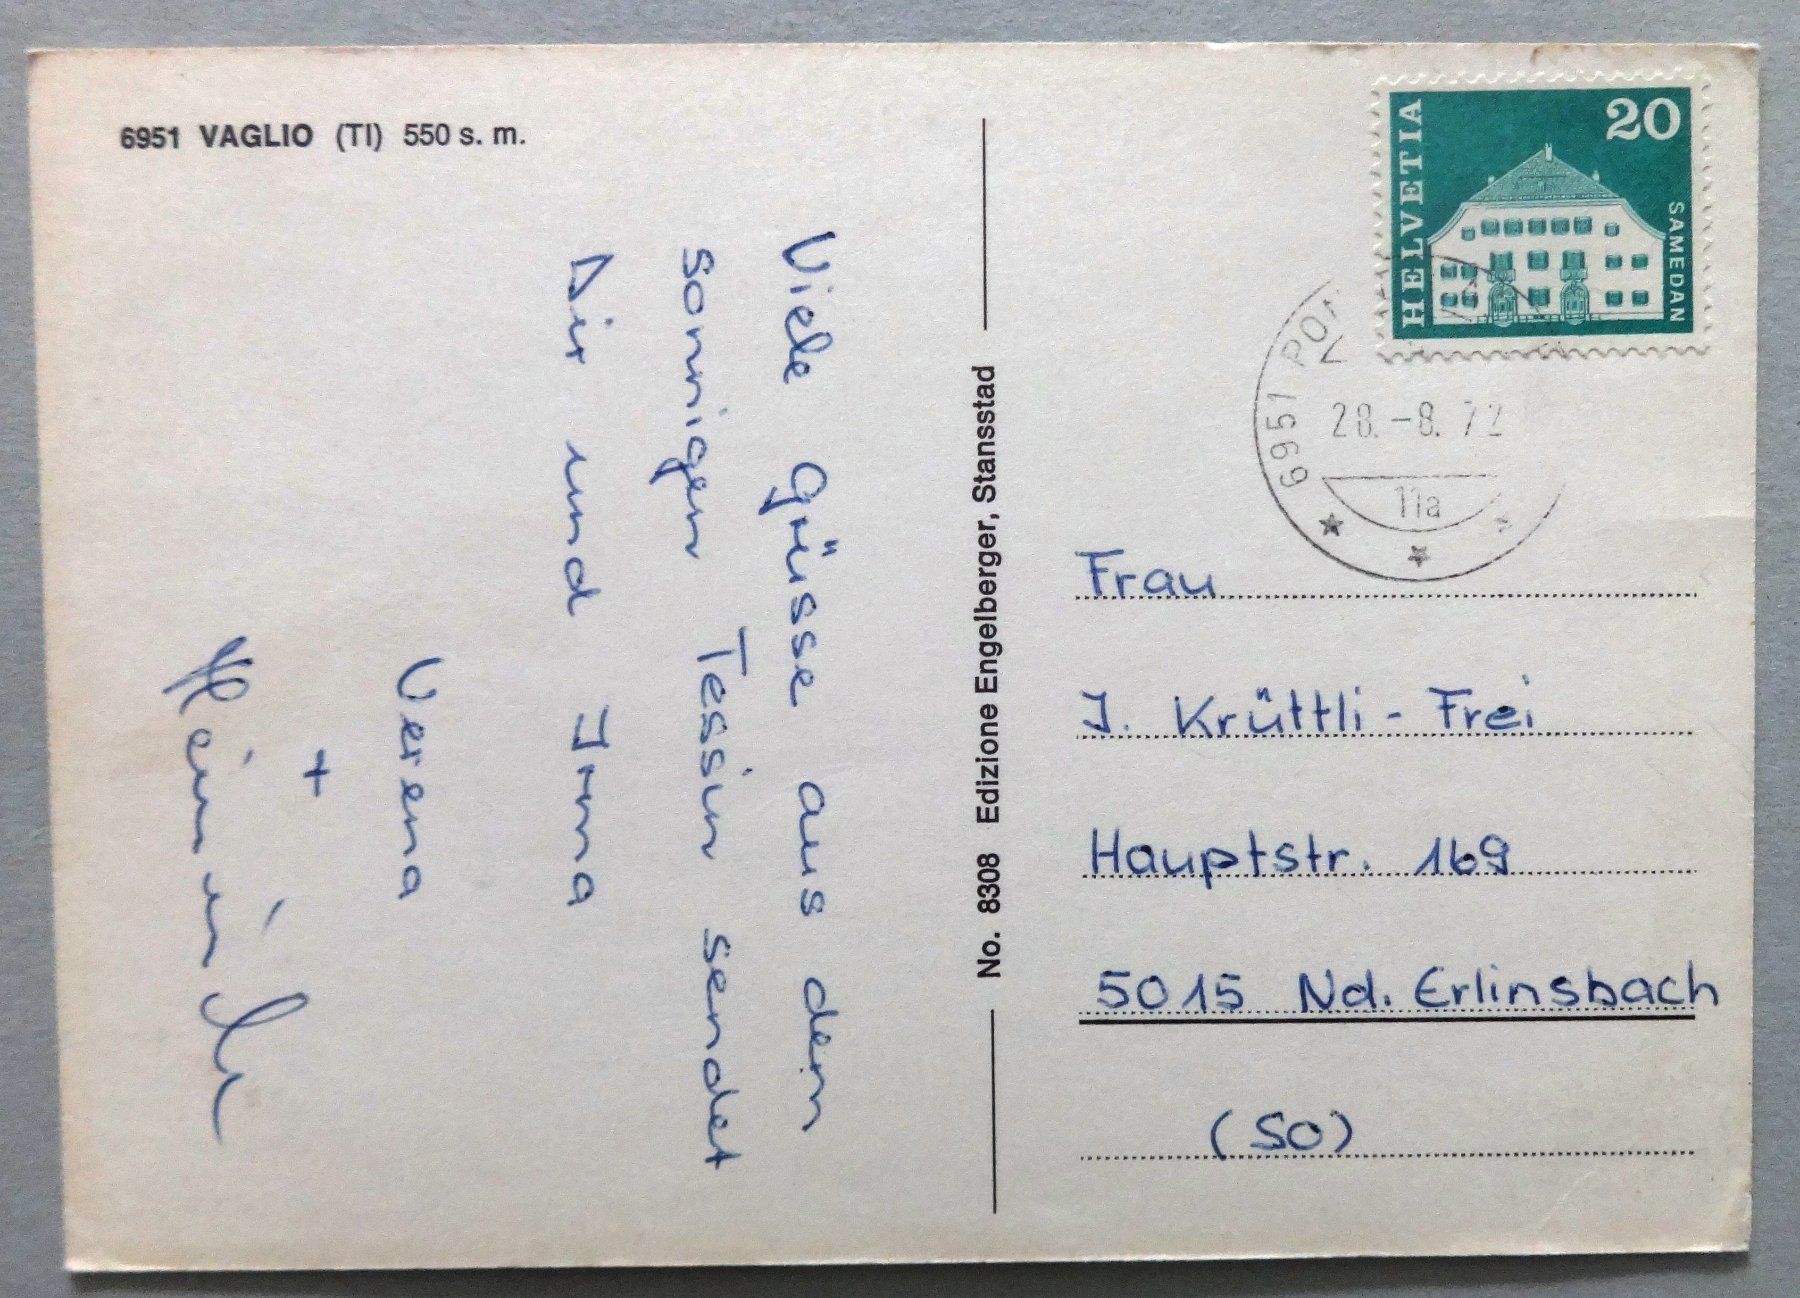 6951 VAGLIO (TI) 550 s. m.
Viele Grüsse aus dem
sonnigen Tessin sendet
Dir und Irma
Verena
+
No. 8308 Edizione Engelberger, Stansstad
HELVETIA
20
SAMEDAN
6951
28.-8.72
11a
Frau
J. Krüttli-Frei
Hauptstr. 169
5015 Nd. Erlinsbach
(SO)